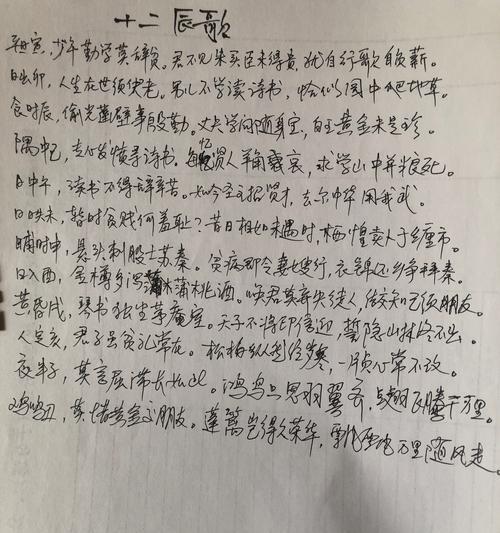 十二辰歌
平旦寅，少年勤学莫辞贫。君不见朱买臣未得贵，犹自行歌自负薪。
日出卯，人生在世须臾老。男儿不学读诗书，恰似园中肥地草。
食时辰，偷光凿壁事殷勤。丈夫学问随身宝，白玉黄金未是珍。
隅中巳，专心发愤寻诗书。每忆贤人羊角哀，求学山中并粮死。
日中午，读书不得辞辛苦。如今圣主招贤才，去尔中华用我武。
日昳未，暂时贫贱何羞耻？昔日相如未遇时，恓惶卖卜于缠市。
晡时申，悬头刺股士苏秦。贫病即令妻嫂行，衣锦还乡争拜秦。
日入酉，金樽多泻蒲桃酒。唤君莫弃失徒人，结交知己须朋友。
黄昏戌，琴书独坐茅庵室。天子不将印信迎，誓隐山林终不出。
人定亥，君子虽贫礼常在。松柏纵然经岁寒，一片贞心常不改。
夜半子，莫言屈滞长如此。鸿鸟只思羽翼齐，点翅飞腾千万里。
鸡鸣丑，莫惜黄金交朋友。蓬蒿岂得久荣华，飘飖万里随风走。